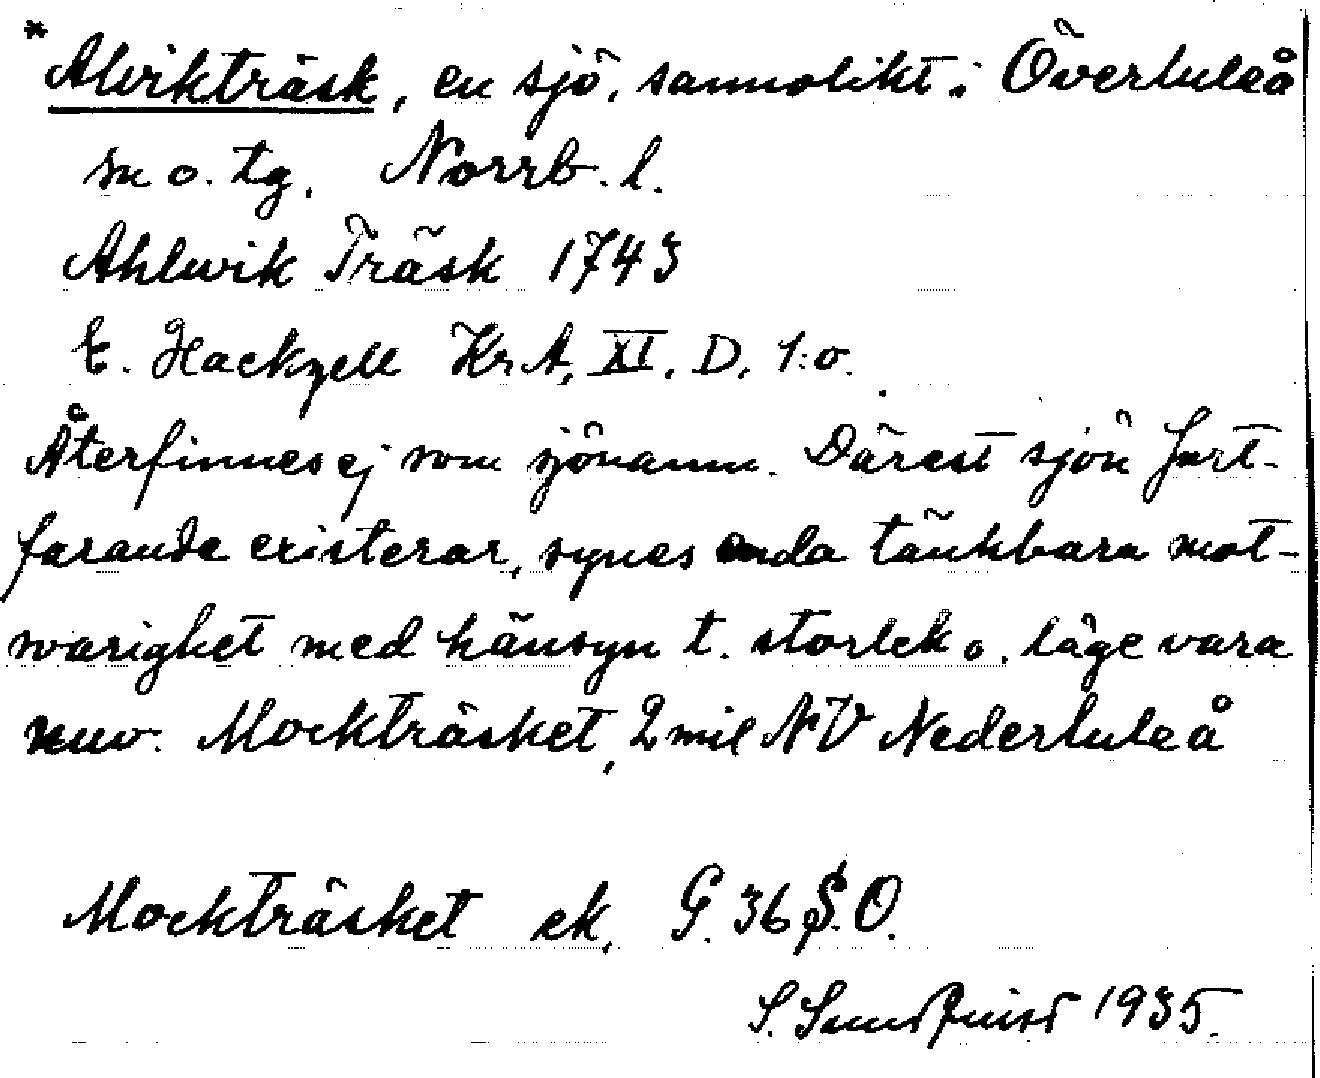 * Alvikträsk, en sjö, sannolikt i Överluleå
sn o. tg. Norrb. l.
Ahlwik Träsk 1743
E. Hackzell Kr.A. XI. D. 1:o.
Återfinnes ej som sjönamn. Därest sjön fort-
farande existerar, synes enda tänkbara mot-
svarighet med hänsyn t. storlek o. läge vara
nuv. Mockträsket, 2 mil NV Nederluleå
Mockträsket ek. G. 36 S.O.
S. Sundquist 1935.